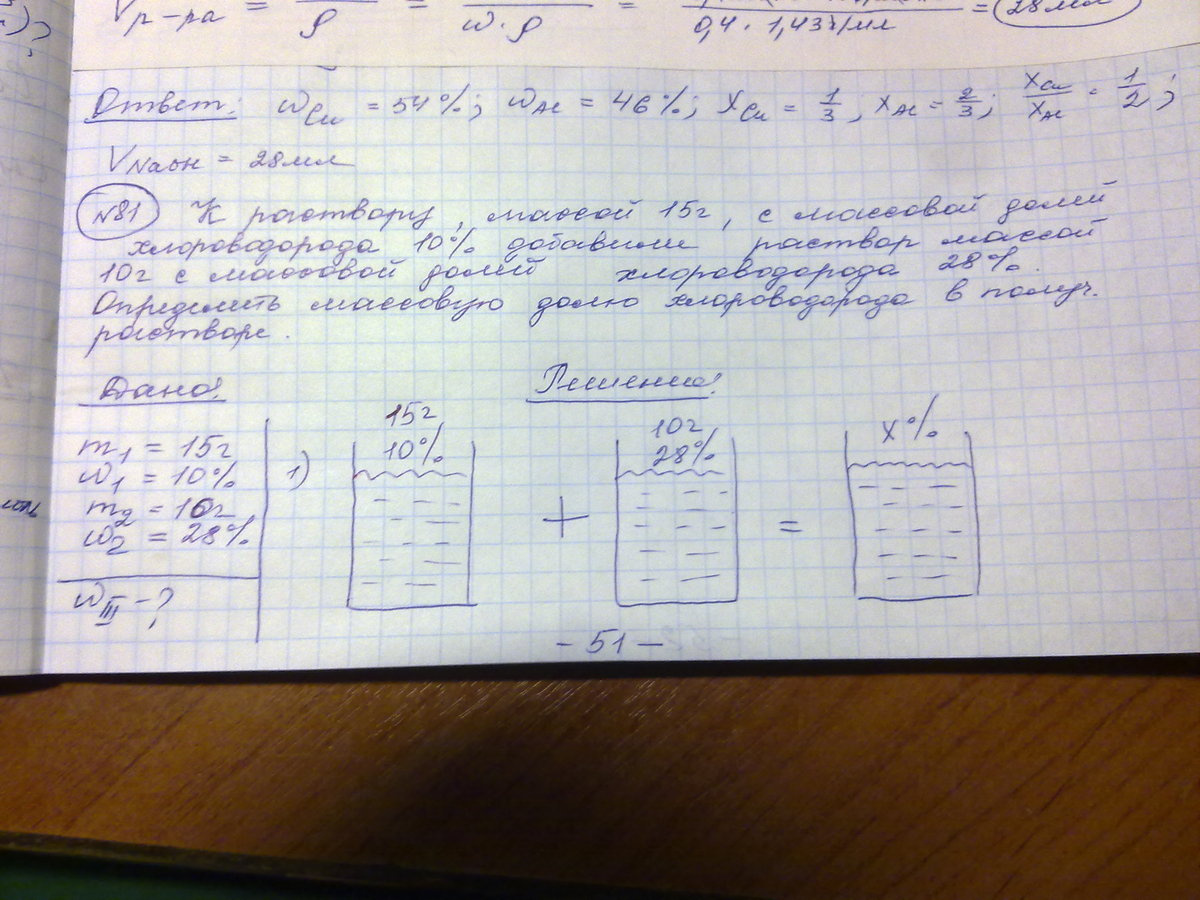 V р-ра = ρ = ω · ρ = 0,4 · 1,43г/мл = 28мл
Ответ: ωCu = 54%; ωAl = 46%; XCu = 1/3, XAl = 2/3; XCu/XAl = 1/2;
VNaOH = 28мл
№81 К раствору, массой 15г, с массовой долей
хлороводорода 10% добавили раствор массой
10г с массовой долей хлороводорода 28%.
Определить массовую долю хлороводорода в получ.
растворе.
Дано: Решение:
m1 = 15г
ω1 = 10%
m2 = 10г
ω2 = 28%
ωIII - ?
1) 15г 10% + 10г 28% = X%
- 51 -